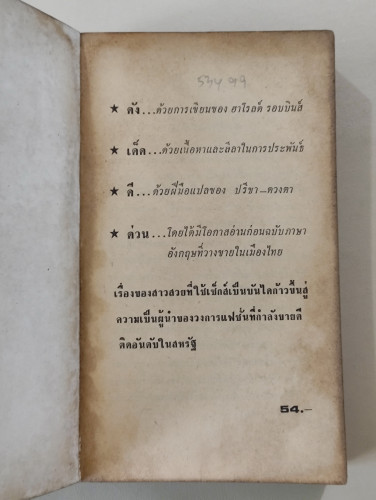 ★ ดัง...ด้วยการเขียนของ ฮาโรลด์ รอบบินส์
★ เด็ด...ด้วยเนื้อหาและลีลาในการประพันธ์
★ ดี...ด้วยฝีมือแปลของ ปรีชา-ดวงตา
★ ด่วน...โดยได้มีโอกาสอ่านก่อนฉบับภาษา
อังกฤษที่วางขายในเมืองไทย
เรื่องของสาวสวยที่ใช้เซ็กส์เป็นบันไดก้าวขึ้นสู่
ความเป็นผู้นำของวงการแฟชั่นที่กำลังขายดี
ติดอันดับในสหรัฐ
54.-